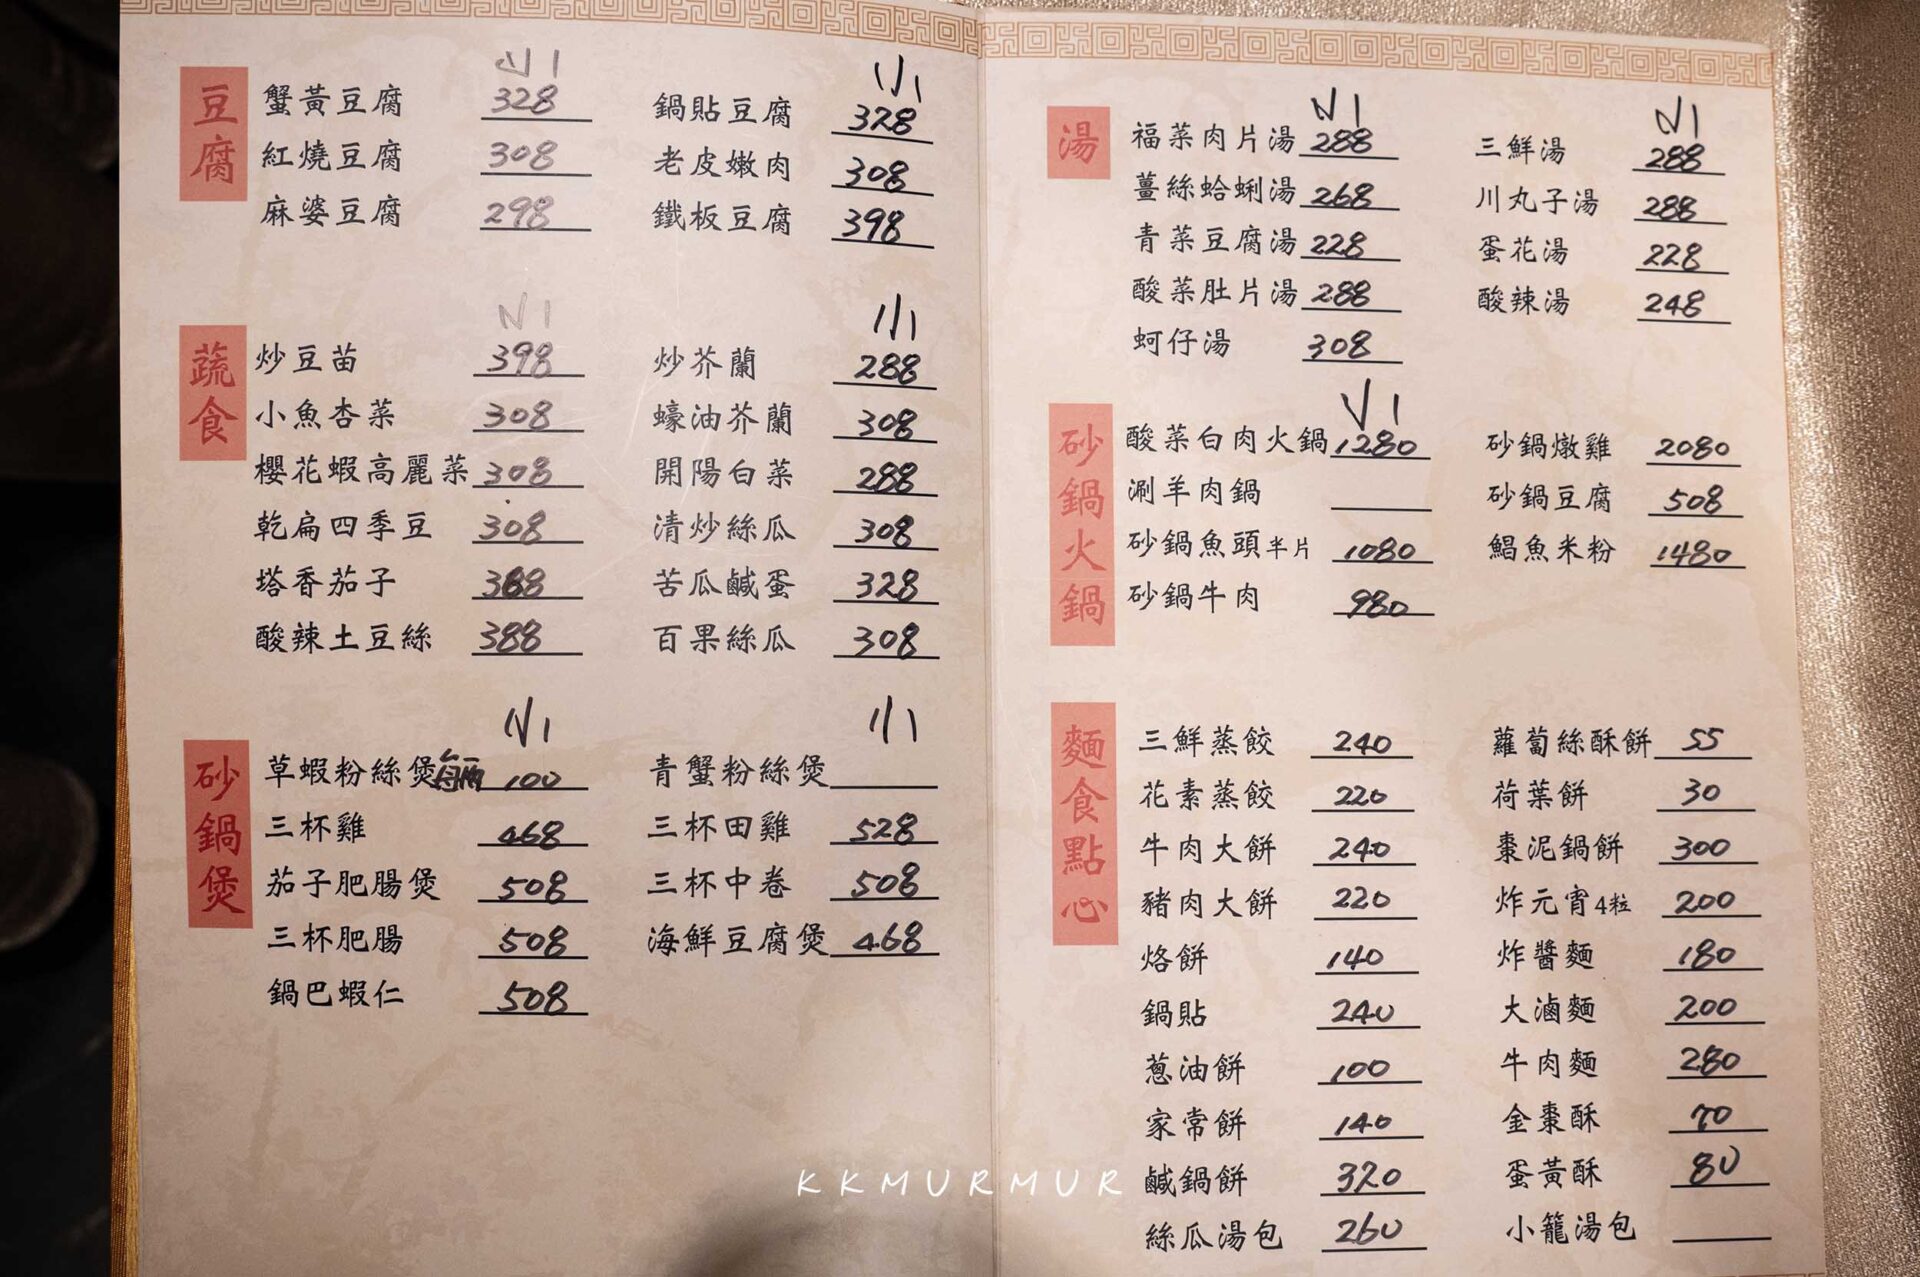 豆腐
小
蟹黃豆腐 328
紅燒豆腐 308
麻婆豆腐 298
小
鍋貼豆腐 328
老皮嫩肉 308
鐵板豆腐 398
蔬食
小
炒豆苗 398
小魚杏菜 308
櫻花蝦高麗菜 308
乾扁四季豆 308
塔香茄子 388
酸辣土豆絲 388
小
炒芥蘭 288
蠔油芥蘭 308
開陽白菜 288
清炒絲瓜 308
苦瓜鹹蛋 328
百果絲瓜 308
砂鍋煲
小
草蝦粉絲煲 每兩 100
三杯雞 468
茄子肥腸煲 508
三杯肥腸 508
鍋巴蝦仁 508
小
青蟹粉絲煲
三杯田雞 528
三杯中卷 508
海鮮豆腐煲 468
湯
小
福菜肉片湯 288
薑絲蛤蜊湯 268
青菜豆腐湯 228
酸菜肚片湯 288
蚵仔湯 308
小
三鮮湯 288
川丸子湯 288
蛋花湯 228
酸辣湯 248
砂鍋火鍋
小
酸菜白肉火鍋 1280
涮羊肉鍋
砂鍋魚頭半片 1080
砂鍋牛肉 980
砂鍋燉雞 2080
砂鍋豆腐 508
鯧魚米粉 1480
麵食點心
三鮮蒸餃 240
花素蒸餃 220
牛肉大餅 240
豬肉大餅 220
烙餅 140
鍋貼 240
蔥油餅 100
家常餅 140
鹹鍋餅 320
絲瓜湯包 260
蘿蔔絲酥餅 55
荷葉餅 30
棗泥鍋餅 300
炸元宵4粒 200
炸醬麵 180
大滷麵 200
牛肉麵 280
金棗酥 70
蛋黃酥 80
小籠湯包
KKMURMUR